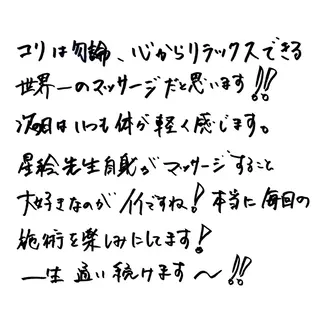 コリは勿論、心からリラックスできる
世界一のマッサージだと思います!!
次の日はいつも体が軽く感じます。
星絵先生自身がマッサージすること
大好きなのがイイですね!本当に毎回の
施術を楽しみにしてます!
一生通い続けます〜!!